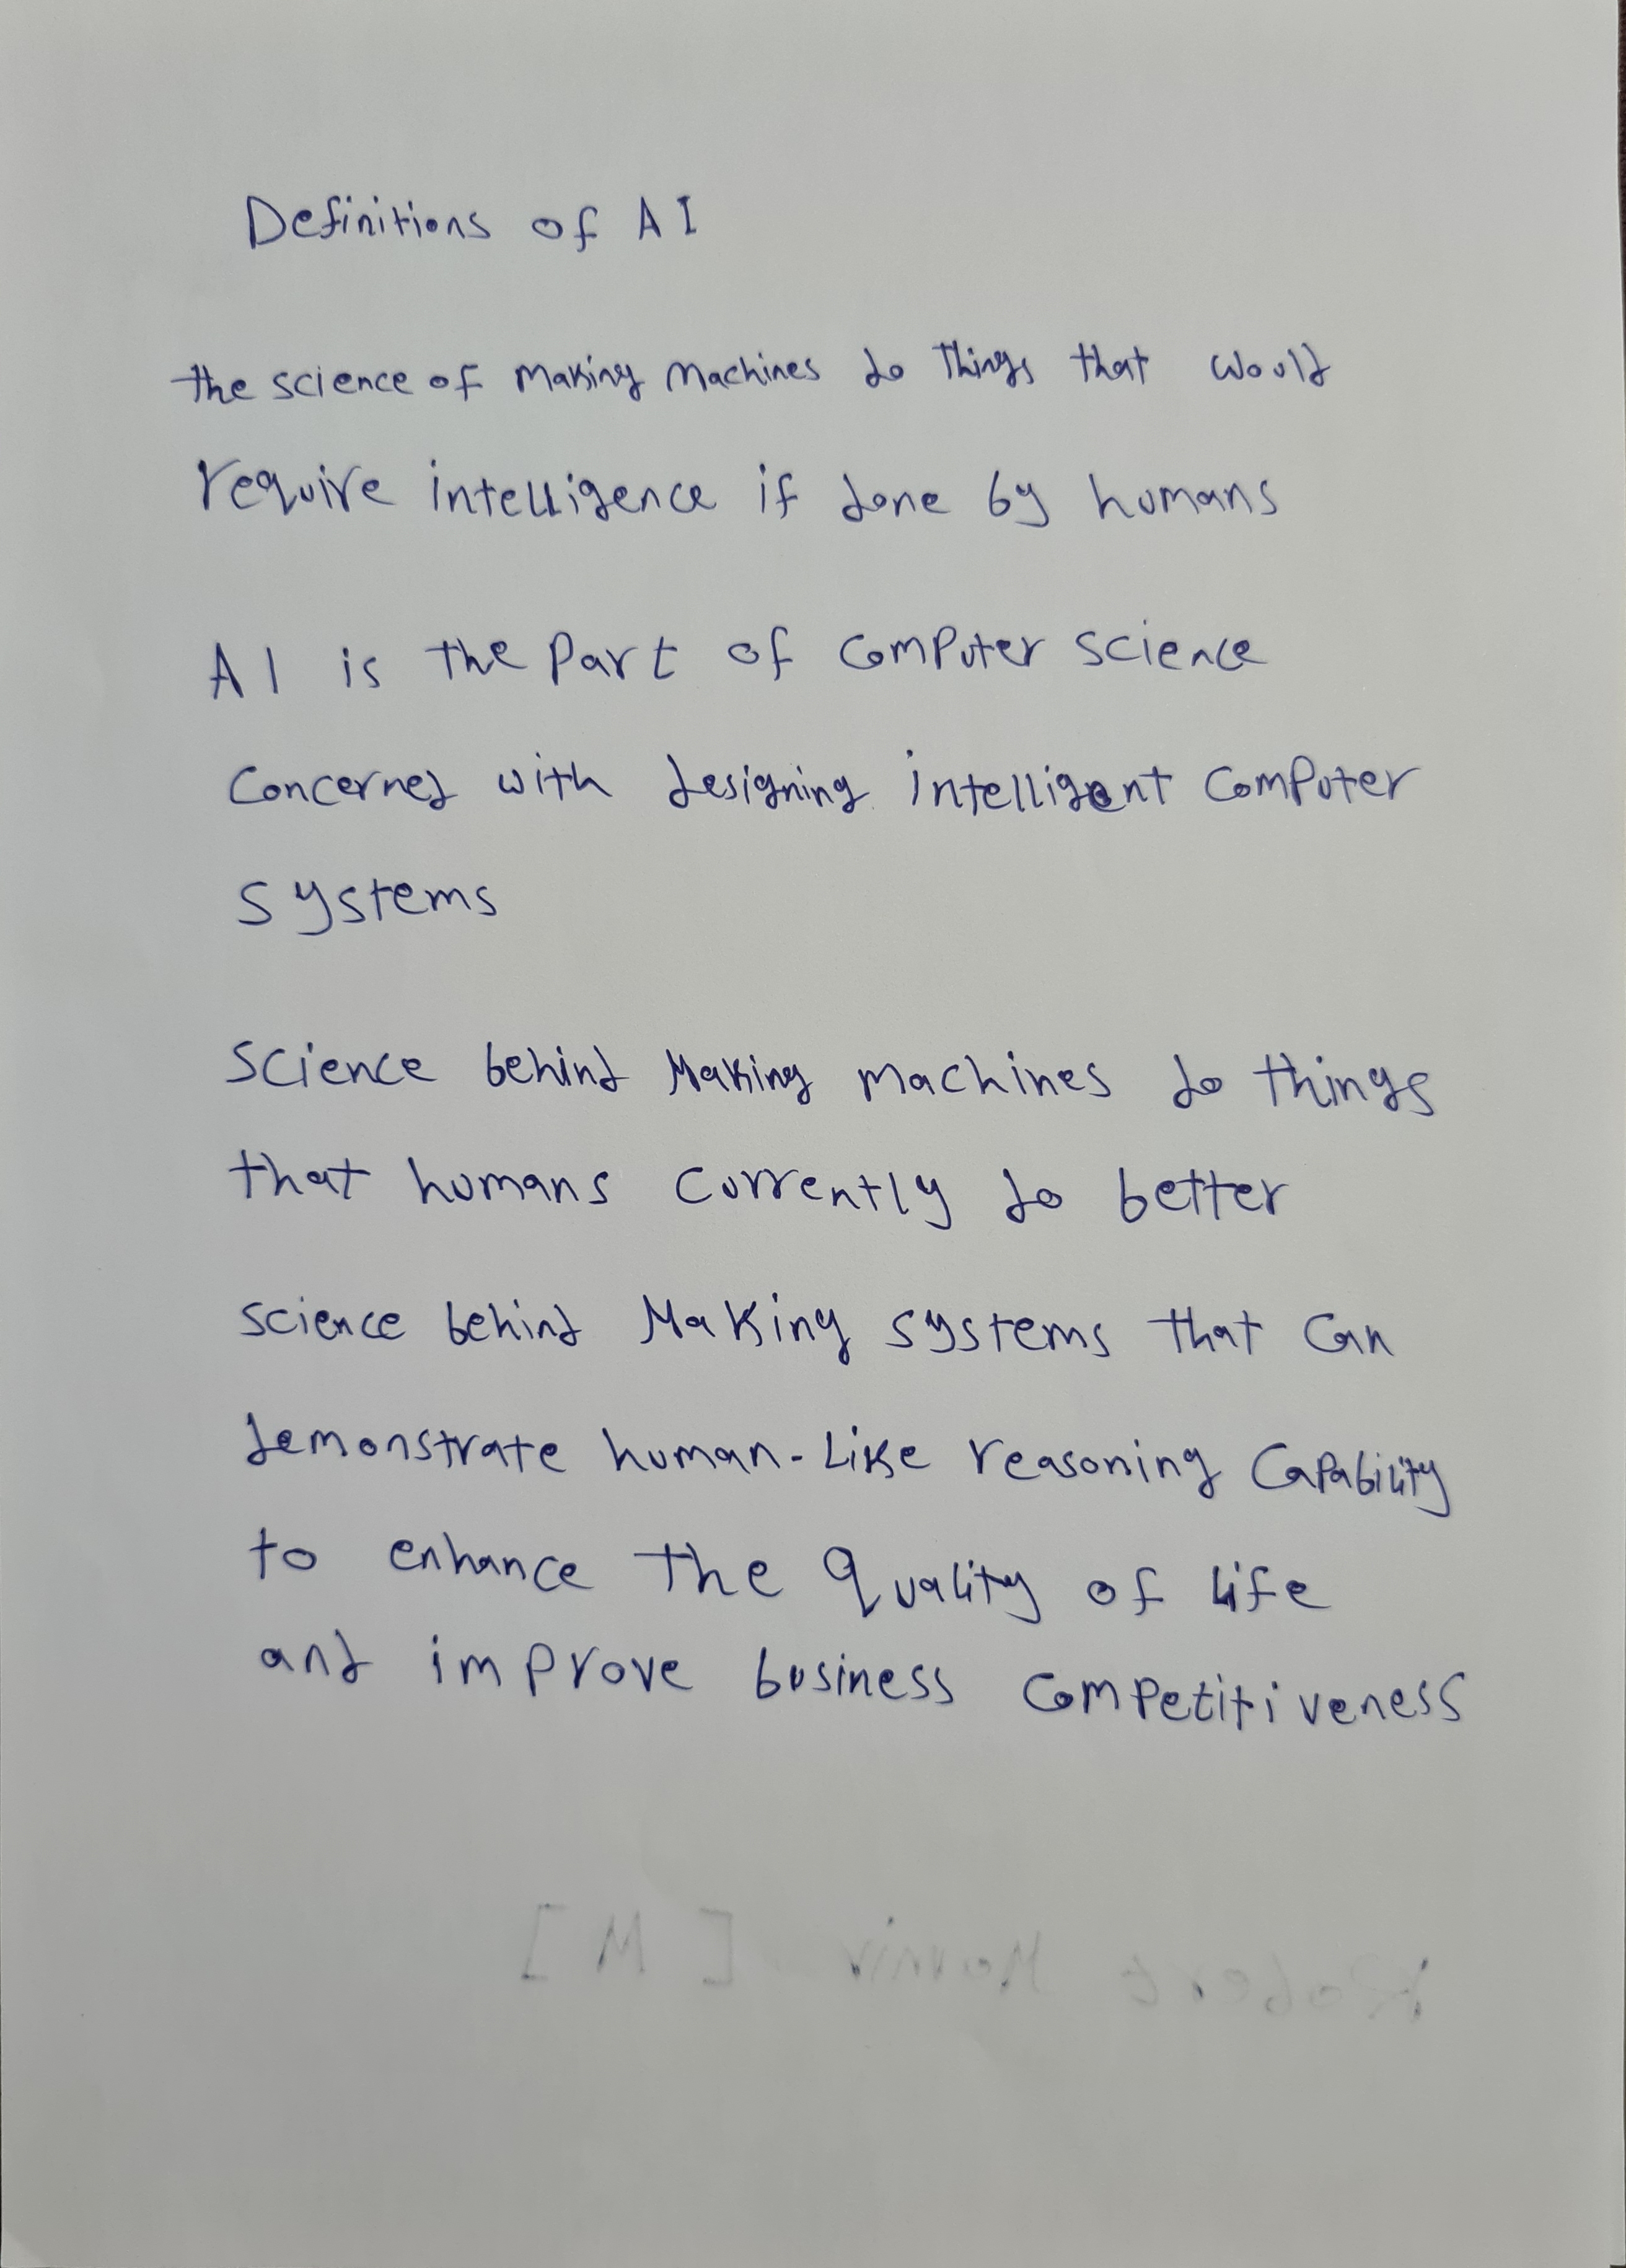 Definitions of AI
the science of making machines do things that would
require intelligence if done by humans
AI is the part of computer science
concerned with designing intelligent computer
systems
science behind making machines do things
that humans currently do better
science behind Making systems that can
demonstrate human-like reasoning capability
to enhance the quality of life
and improve business competitiveness